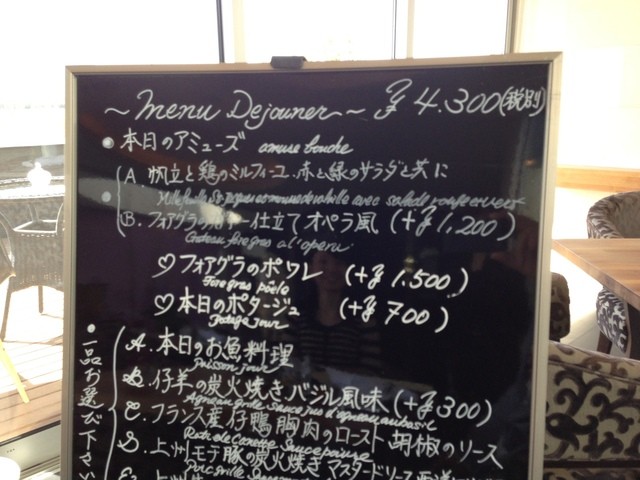 ~ Menu Dejeuner ~ ¥ 4.300(税別)
• 本日のアミューズ amuse bouche
A. 帆立と鶏のミルフィーユ、赤と緑のサラダと共に
Millefeuille St Jaques et mousse de volaille avec salade rouge et vert
B. フォアグラの 仕立て オペラ風 (+¥1,200)
Gateau foie gras a l'operu
♡フォアグラのポワレ (+¥ 1.500)
Foie gras poelo
♡本日のポタージュ (+¥ 700)
Potage jour
•一品お選び下さい
A. 本日のお魚料理
Poisson jour
B. 仔羊の炭火焼きバジル風味 (+¥300)
Agneau grille Sauce jus d'agneau au basil
C. フランス産仔鴨胸肉のロースト 胡椒のソース
Roti de Canette Sauce poivre
D. 上州モチ豚の炭火焼き マスタードソース
Porc grille
E. 上州